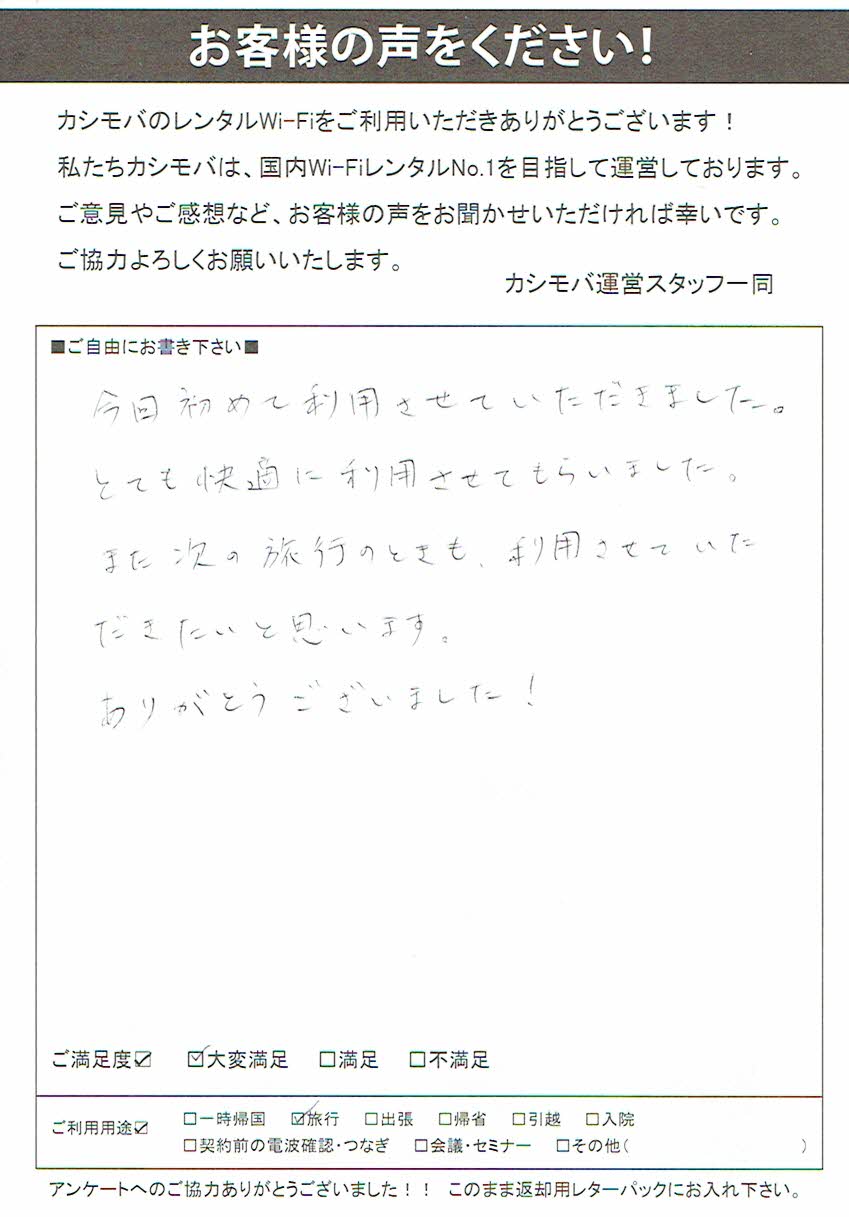 お客様の声をください!
カシモバのレンタルWi-Fiをご利用いただきありがとうございます！
私たちカシモバは、国内Wi-FiレンタルNo.1を目指して運営しております。
ご意見やご感想など、お客様の声をお聞かせいただければ幸いです。
ご協力よろしくお願いいたします。
カシモバ運営スタッフ一同
■ご自由にお書き下さい■
今回初めて利用させていただきました。
とても快適に利用させてもらいました。
また次の旅行のときも、利用させていた
だきたいと思います。
ありがとうございました！
ご満足度☑ ☑大変満足 □満足 □不満足
ご利用用途☑ □一時帰国 ☑旅行 □出張 □帰省 □引越 □入院
□契約前の電波確認・つなぎ □会議・セミナー □その他( )
アンケートへのご協力ありがとうございました！！ このまま返却用レターパックにお入れ下さい。